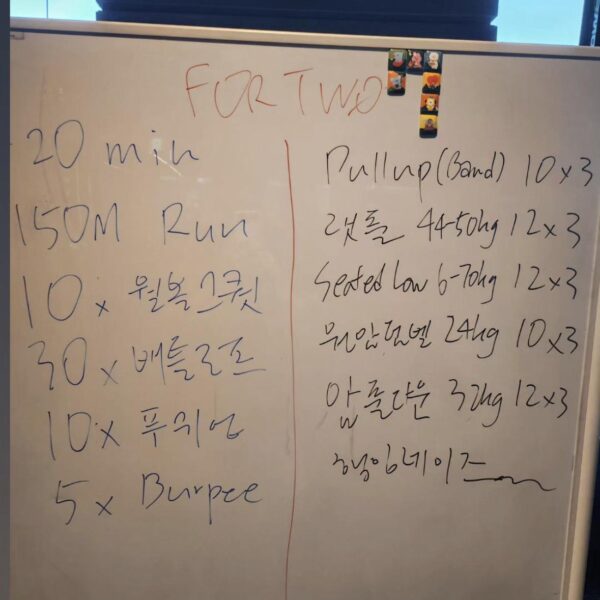 FOR TWO
20 min
150M Run
10 x 월볼스쿼트
30 x 배틀로프
10 x 푸쉬업
5 x Burpee
Pull up (Band) 10 x 3
랫풀 44-50kg 12 x 3
Seated Low 6-70kg 12 x 3
원암덤벨 24kg 10 x 3
암풀다운 32kg 12 x 3
행잉레이즈